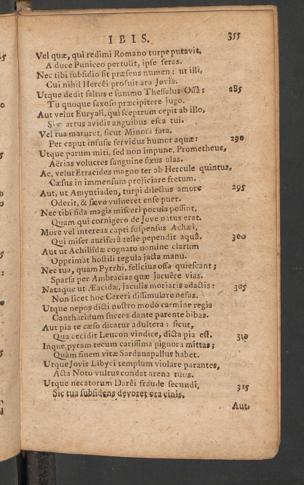 IBIS. 355
Vel quæ, qui redimi Romano turpe putavit,
A duce Puniceo pertulit, ipse feras.
Nec tibi subsidio sit præsens numen: ut illi,
Cui nihil Hercêi profuit ara Jovis.
Utque dedit saltus e summo Thessalus Ossâ: 285
Tu quoque saxoso præcipitere jugo.
Aut velut Euryali, qui sceptrum cepit ab illo,
Sint artus avidis anguibus esca tui.
Vel tua maturet, sicut Minoia fata,
Per caput infusæ fervidus humor aquæ: 290
Utque parum miti, sed non impune, Prometheus,
Aërias volucres sanguine fixus alas.
Ac, velut Etracides magno ter ab Hercule quintus,
Cæsus in immensum projiciare fretum.
Aut, ut Amyntiaden, turpi dilectus amore 295
Oderit, & sævo vulneret ense puer.
Nec tibi fida magis misceri pocula possint,
Quam qui cornigero de Jove natus erat.
More vel intereas capti suspensus Achæi,
Qui miser auriferâ teste pependit aquâ. 300
Aut ut Achillidæ cognato nomine clarum
Opprimat hostili tegula jacta manu.
Nec tua, quam Pyrrhi, felicius ossa quiescant;
Sparsa per Ambracias quæ jacuere vias.
Nataque ut Æacidæ, jaculis moriaris adactis: 305
Non licet hoc Cereri dissimulare nefas.
Utque nepos dicti nostro modo carmine regis
Cantharidum succos dante parente bibas.
Aut pia te cæso dicatur adultera: sicut,
Qua cecidit Leucon vindice, dicta pia est. 310
Inque pyram tecum carissima pignora mittas;
Quam finem vitæ Sardanapallus habet.
Utque Jovis Libyci templum violare parantes,
Acta Noto vultus condat arena tuos.
Utque necatorum Darêi fraude secundi, 315
Sic tua subsidens devoret ora cinis.
Aut